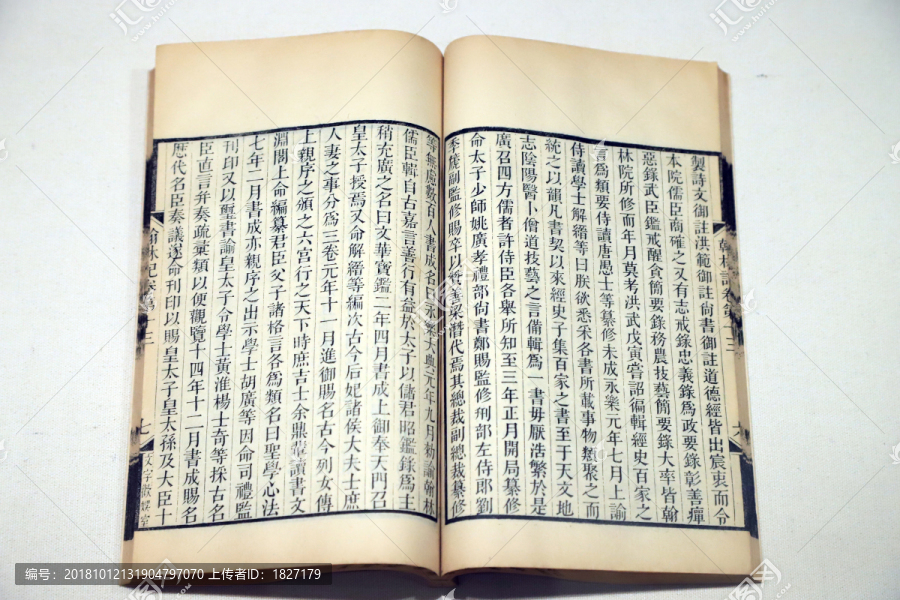 製詩文御註洪範御註尚書御註道德經皆出宸衷而令
本院儒臣商確之又有志戒錄忠義錄爲政要錄彰善癉
惡錄武臣鑑戒醒食簡要錄務農技藝簡要錄大率皆翰
林院所修而年月莫考洪武戊寅嘗詔徧輯經史百家之
言爲類要侍讀唐愚士等纂修未成永樂元年七月上諭
侍讀學士解縉等曰朕欲悉采各書所載事物類聚之而
統之以韻凡書契以來經史子集百家之書至于天文地
志陰陽醫卜僧道技藝之言備輯爲一書毋厭浩繁於是
廣召四方儒者許侍臣各舉所知至三年正月開局纂修
命太子少師姚廣孝禮部尚書鄭賜監修刑部左侍郎劉
季篪副監修賜卒以贊善梁潛代焉其總裁副總裁纂修
等無慮數百人書成名曰永樂大典元年九月勅諭翰林
儒臣輯自古嘉言善行有益於太子以儲君昭鑑錄爲主
稍充廣之名曰文華寶鑑二年四月書成上御奉天門召
皇太子授焉又命解縉等編次古今后妃諸侯大夫士庶
人妻之事分爲三卷元年十一月進御賜名古今列女傳
上親序之頒之六宮行之天下時庶吉士余鼎等讀書文
淵閣上命編纂君臣父子諸格言各爲類名曰聖學心法
七年二月書成亦親序之出示學士胡廣等因命司禮監
刊印又以璽書諭皇太子令學士黃淮楊士奇等採古名
臣直言并奏疏彙類以便觀覽十四年十二月書成賜名
歷代名臣奏議遂命刊印以賜皇太子皇太孫及大臣十
七
编号：20181012131904797070 上传者ID：1827179
汇图网